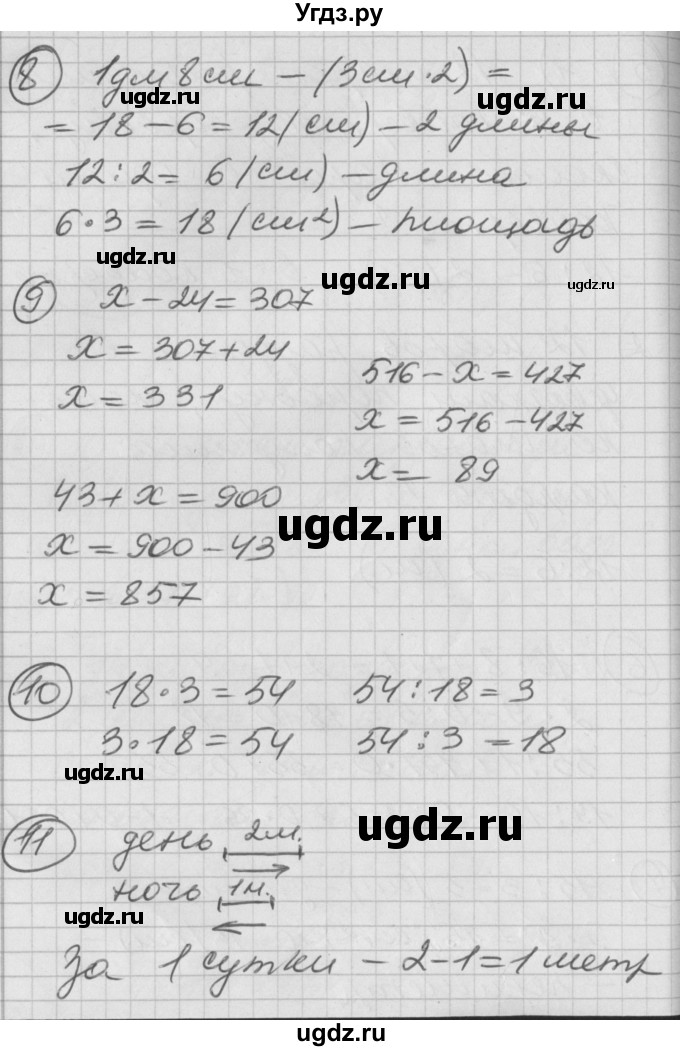 Угдз.ру
8 1дм 8см - (3см·2) =
ugdz.ru ugdz.ru
= 18 - 6 = 12 (см) - 2 длины
12 : 2 = 6 (см) - длина
6 · 3 = 18 (см²) - площадь
ugdz.ru ugdz.ru ugdz.ru
9 x - 24 = 307
x = 307 + 24
x = 331
516 - x = 427
x = 516 - 427
x = 89
43 + x = 900
ugdz.ru
x = 900 - 43
x = 857
10 18 · 3 = 54 54 : 18 = 3
3 · 18 = 54 54 : 3 = 18
ugdz.ru
ugdz.ru
11 день 2м.
ночь 1м.
ugdz.ru
За 1 сутки - 2 - 1 = 1 метр
ugdz.ru